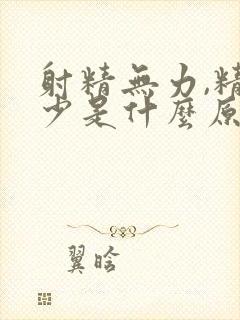 射精無力,精
少是什麼原
翼晗